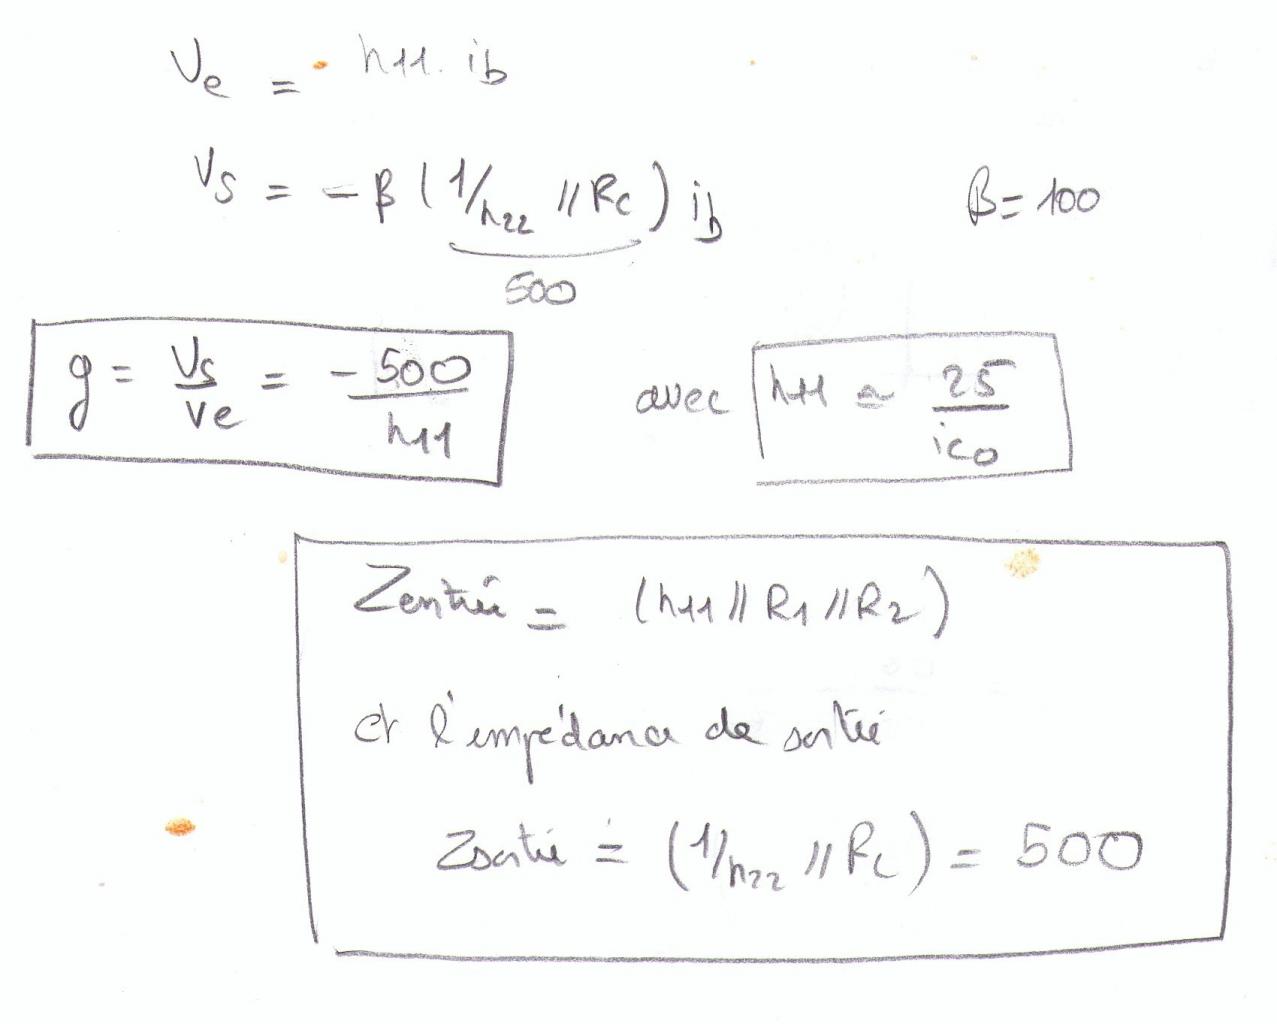 Ve = h11. ib
Vs = -β (1/h22 // Rc) ib β = 100
500
g = Vs/Ve = - 500/h11 avec h11 ≃ 25/ico
Zentrée = (h11 // R1 // R2)
et l'impédance de sortie
Zsortie = (1/h22 // Rc) = 500